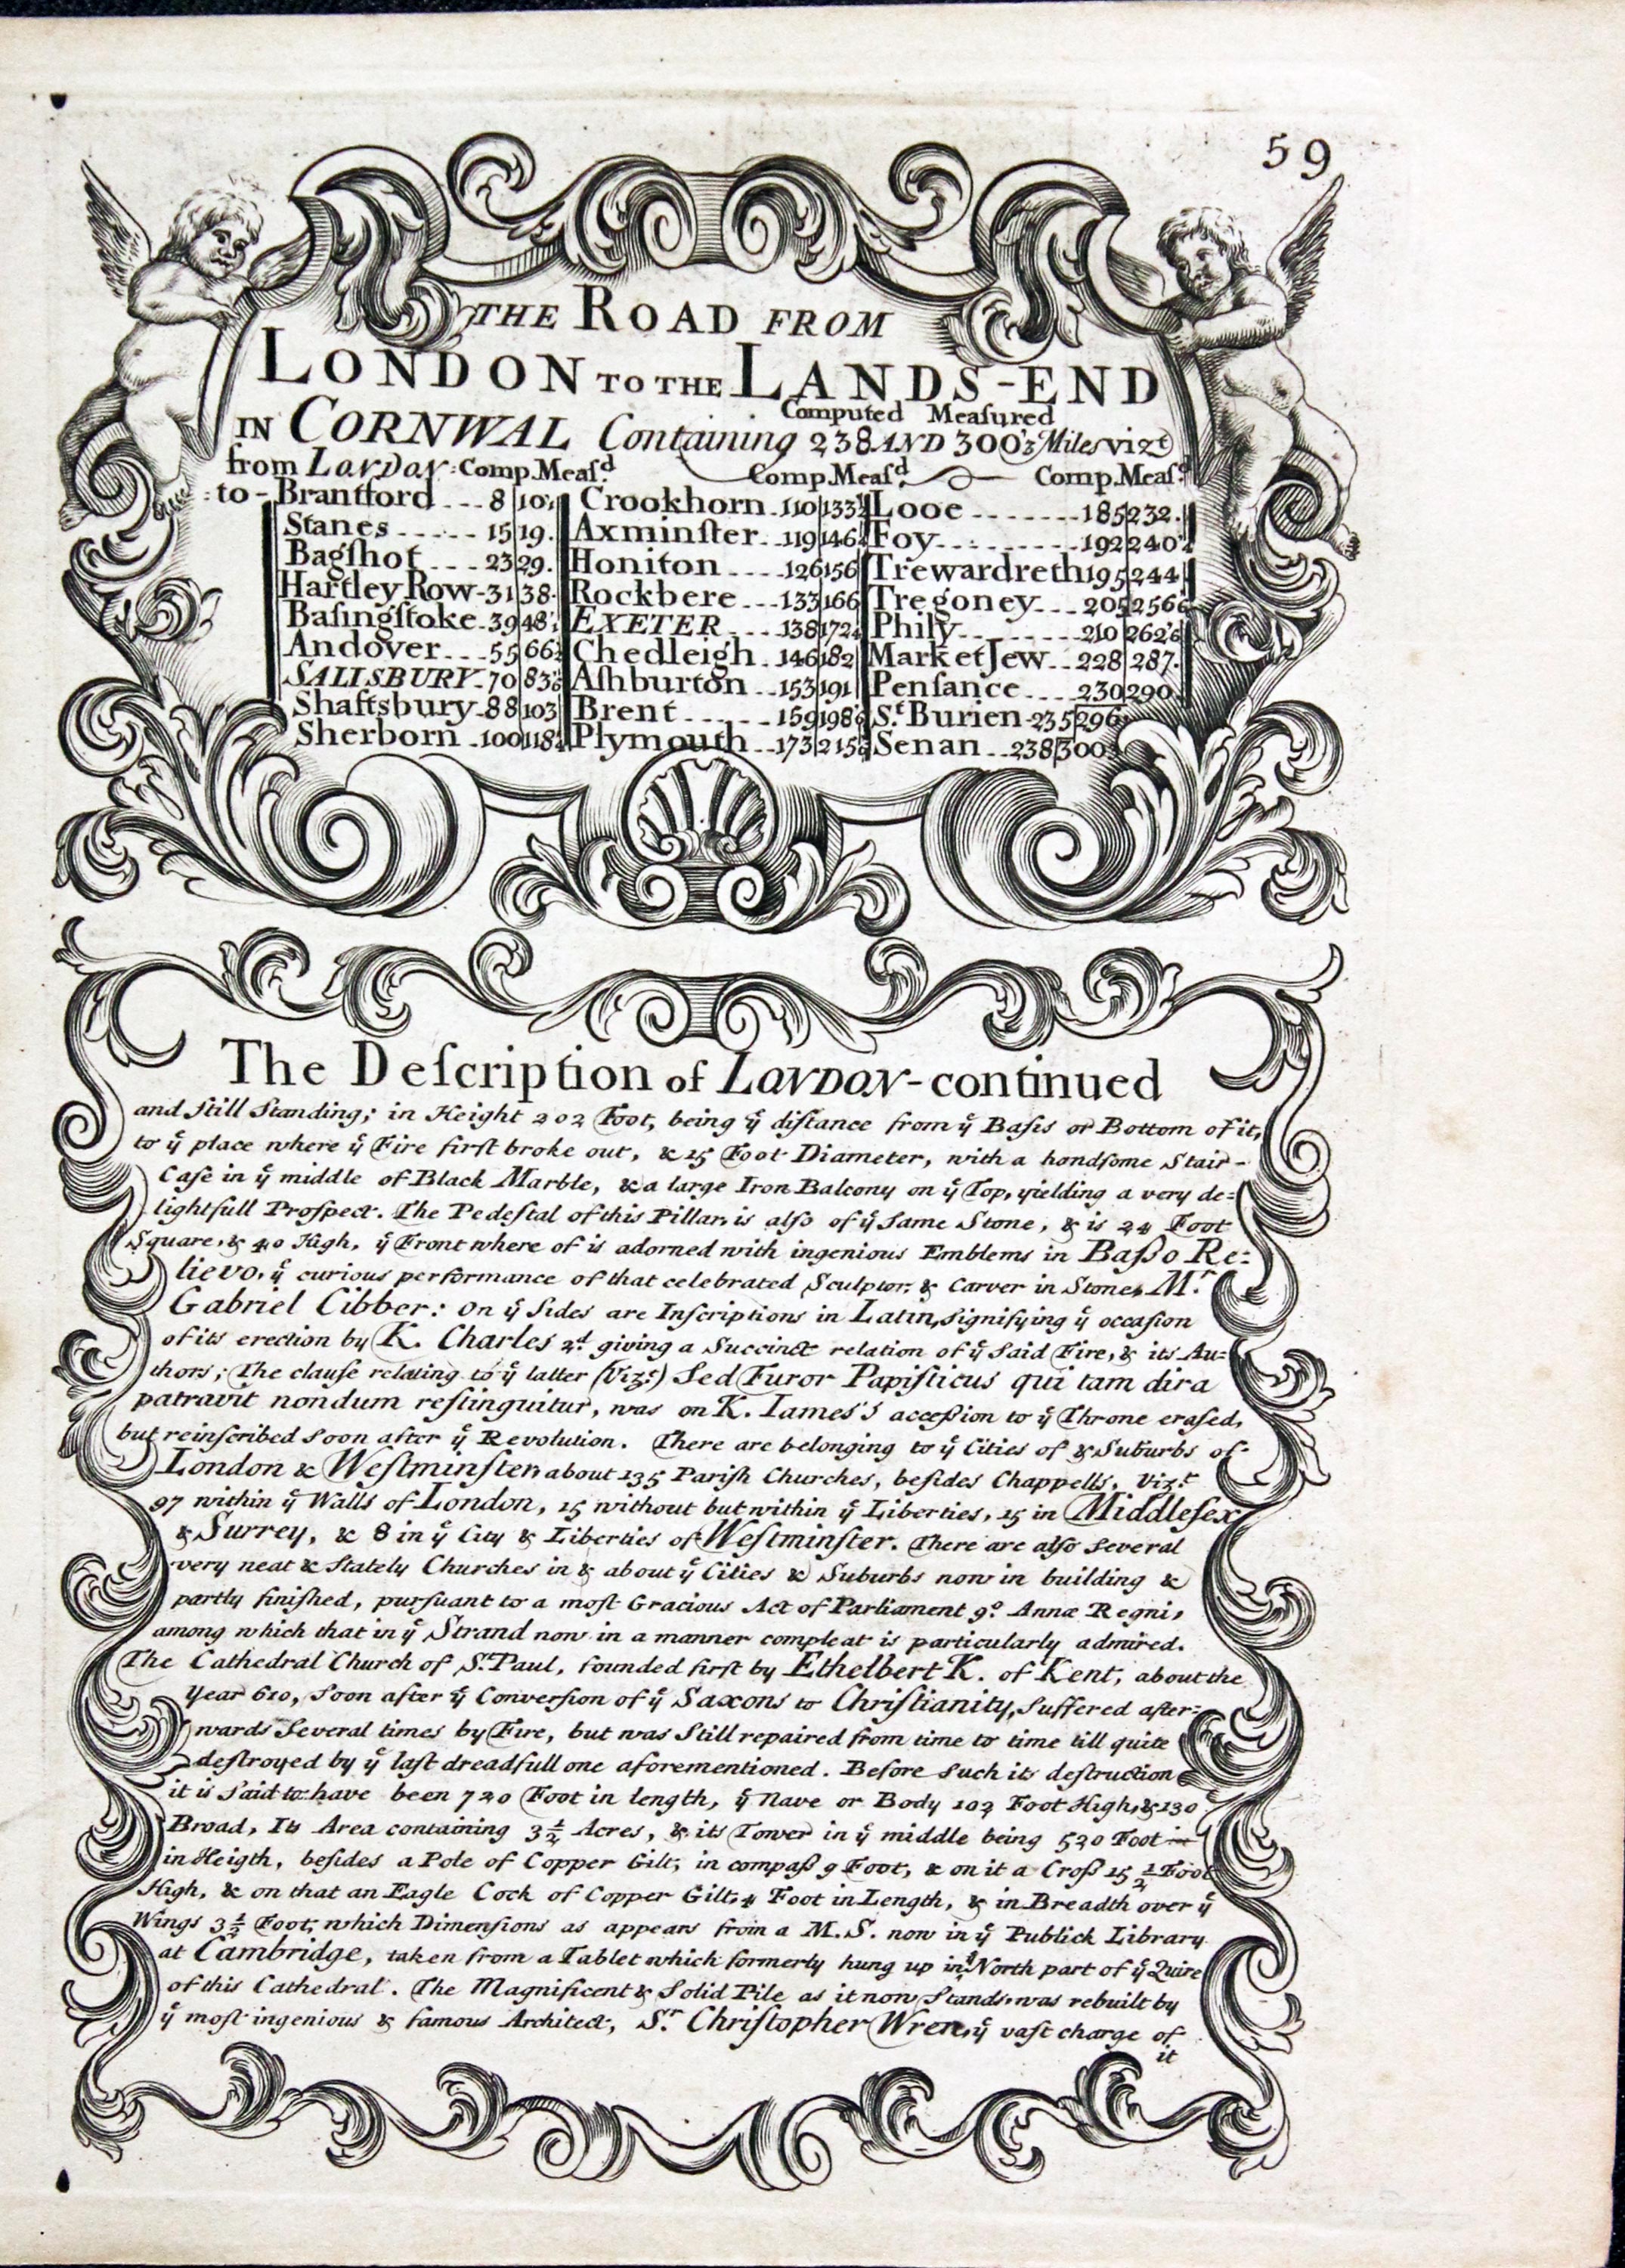 59
THE ROAD FROM
LONDON TO THE LANDS-END
Computed Meaſured
IN CORNWAL Containing 238 AND 300 Miles vizt
from LONDON: Comp. Meaſd. Comp. Meaſd. Comp. Meaſd
to - Brantford 8 10 Crookhorn 110 133 Looe 185 232
Stanes 15 19 Axminſter 119 146 Foy 192 240
Bagſhot 23 29 Honiton 126 156 Trewardreth 195 244
Hartley Row 31 38 Rockbere 133 166 Tregoney 205 256
Baſingſtoke 39 48 EXETER 138 172 Phily 210 262
Andover 55 66 Chedleigh 146 182 Market Jew 228 287
SALISBURY 70 83 Aſhburton 153 191 Penſance 230 290
Shaftsbury 88 103 Brent 159 198 St. Burien 235 296
Sherborn 100 118 Plymouth 173 215 Senan 238 300
The Deſcription of LONDON - continued
and ſtill Standing; in Height 202 Foot, being ÿ diſtance from ÿ Baſis or Bottom of it,
to ÿ place where ÿ Fire firſt broke out, & 15 Foot Diameter, with a handſome Stair-
Caſe in ÿ middle of Black Marble, & a large Iron Balcony on ÿ Top, yielding a very de=
lightfull Proſpect. The Pedeſtal of this Pillar, is alſo of ÿ Same Stone, & is 24 Foot
Square, & 40 High, ÿ Front where of is adorned with ingenious Emblems in Baßo Re=
lievo, ÿ curious performance of that celebrated Sculptor, & Carver in Stone, Mr.
Gabriel Cibber: On ÿ Sides are Inſcriptions in Latin, Signifying ÿ occaſion
of its erection by K. Charles 2d. giving a Succinct relation of ÿ Said Fire, & its Au=
thors; The clauſe relating to ÿ latter (Vizt.) Sed Furor Papiſticus qui tam dira
patravit nondum reſtinguitur, was on K. Iames's acceßion to ÿ Throne eraſed,
but reinſcribed soon after ÿ Revolution. There are belonging to ÿ Cities of & Suburbs of
London & Weſtminſter, about 135 Pariſh Churches, beſides Chappells, Vizt.
97 within ÿ Walls of London, 15 without but within ÿ Liberties, 15 in Middleſex
& Surrey, & 8 in ÿ City & Liberties of Weſtminſter. There are alſo Several
very neat & Stately Churches in & about ÿ Cities & Suburbs now in building &
partly finiſhed, purſuant to a moſt Gracious Act of Parliament 9o. Annæ Regni,
among which that in ÿ Strand now in a manner compleat is particularly admired.
The Cathedral Church of St. Paul, founded firſt by Ethelbert K. of Kent, about the
Year 610, Soon after ÿ Converſion of ÿ Saxons to Chriſtianity, Suffered after=
wards Several times by Fire, but was Still repaired from time to time till quite
deſtroyed by ÿ laſt dreadfull one aforementioned. Before Such its deſtruction
it is Said to have been 720 Foot in length, ÿ Nave or Body 102 Foot High, & 130
Broad, Its Area containing 3½ Acres, & its Tower in ÿ middle being 520 Foot in
in Heigth, beſides a Pole of Copper Gilt, in compaß 9 Foot, & on it a Croß 15 ½ Foot
High, & on that an Eagle Cock of Copper Gilt, 4 Foot in Length, & in Breadth over ÿ
Wings 3½ Foot; which Dimenſions as appears from a M.S. now in ÿ Publick Library
at Cambridge, taken from a Tablet which formerly hung up in ÿ North part of ÿ Quire
of this Cathedral. The Magnificent & Solid Pile as it now Stands, was rebuilt by
ÿ moſt ingenious & famous Architect, Sr. Chriſtopher Wren, ÿ vaſt charge of
it